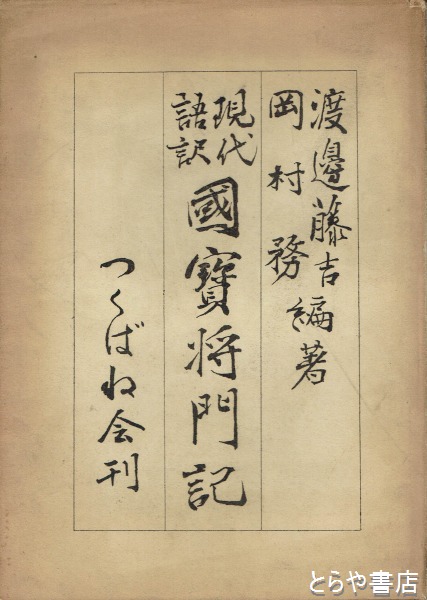 渡邊藤吉
岡村務編著
現代語訳
國寶将門記
つくばね会刊
とらや書店